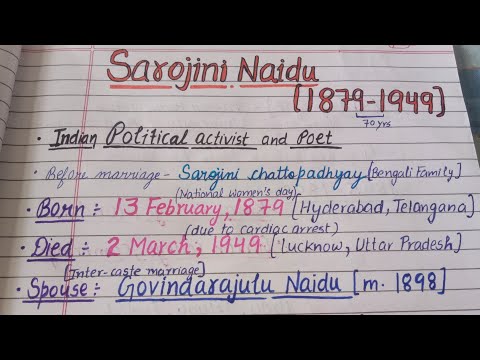 Sarojini Naidu
[1879-1949]
70 yrs
• Indian Political activist and Poet
• Before marriage - Sarojini chattopadhyay [Bengali Family]
(National women's day)
• Born :- 13 February, 1879 [Hyderabad, Telangana]
(due to cardiac arrest)
• Died :- 2 March, 1949 [Lucknow, Uttar Pradesh]
[Inter-caste marriage]
• Spouse :- Govindarajulu Naidu [m. 1898]